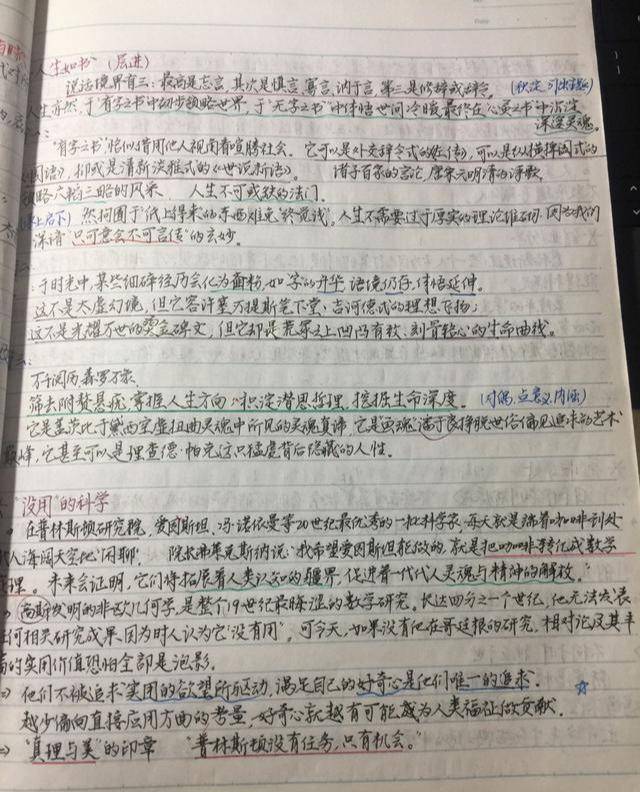 人生如书"（层进）
说话境界有三：最高是忘言，其次是慎言、寡言、讷于言，第三是修辞或辞令。（积淀 引出主题）
人生亦然，于"有字之书"中初步领略世界，于"无字之书"中体悟世间冷暖，最终在"心灵之书"中沉淀
深邃灵魂。
"有字之书"恰似借用他人视角看喧腾社会。它可以是外交辞令式的《左传》，可以是纵横捭阖式的
国语》，抑或是清新淡雅式的《世说新语》。 诸子百家的言论，唐宋元明清的诗歌
领略六韬三略的风采， 人生不可或缺的法门。
（承上启下）然拘囿于"纸上得来"的东西难免"终觉浅"。人生不需要过于厚实的理论堆砌，因为我们
深谙"只可意会不可言传"的玄妙。
于时光中，某些细碎经历会化为面粉，如"字"的升华，语境仍存，体悟延伸。
这不是太虚幻境，但它容许塞万提斯笔下堂·吉诃德式的理想飞扬；
这不是光耀万世的碑文，但它却是荒冢之上凹凸有致、刻骨铭心的生命曲线。
于阅历森罗万象
筛去附赘悬疣，掌握人生方向，积淀潜思哲理，挖掘生命深度。（对偶，点意义、内涵）
它是盖茨比于黛西空虚扭曲灵魂中所见的灵魂真谛，它是"画魂"潘玉良挣脱世俗偏见追求的艺术
巅峰，它甚至可以是理查德·帕克这只猛虎背后隐藏的人性。
"没用"的科学
在普林斯顿研究院，爱因斯坦、冯·诺依曼等20世纪最优秀的一批科学家，每天就是端着咖啡到处
找人海阔天空地"闲聊"。 院长弗莱克斯纳说："我希望爱因斯坦能做的，就是把咖啡转化成数学
定理。未来会证明，它们将拓展着人类认知的疆界，促进着一代代人灵魂与精神的解放。"
高斯发明的非欧几何学，是整个19世纪最晦涩的数学研究。长达四分之一个世纪，他无法发表
任何相关研究成果，因为时人认为它"没有用"，可今天，如果没有他在哥廷根的研究，相对论及其丰
富的实用价值恐怕全部是泡影。
他们不被追求实用的欲望所驱动，满足自己的好奇心是他们唯一的追求。
越少偏向直接应用方面的考量，好奇心就越有可能成为人类福祉做贡献。
"真理与美"的印章 "普林斯顿没有任务，只有机会。"